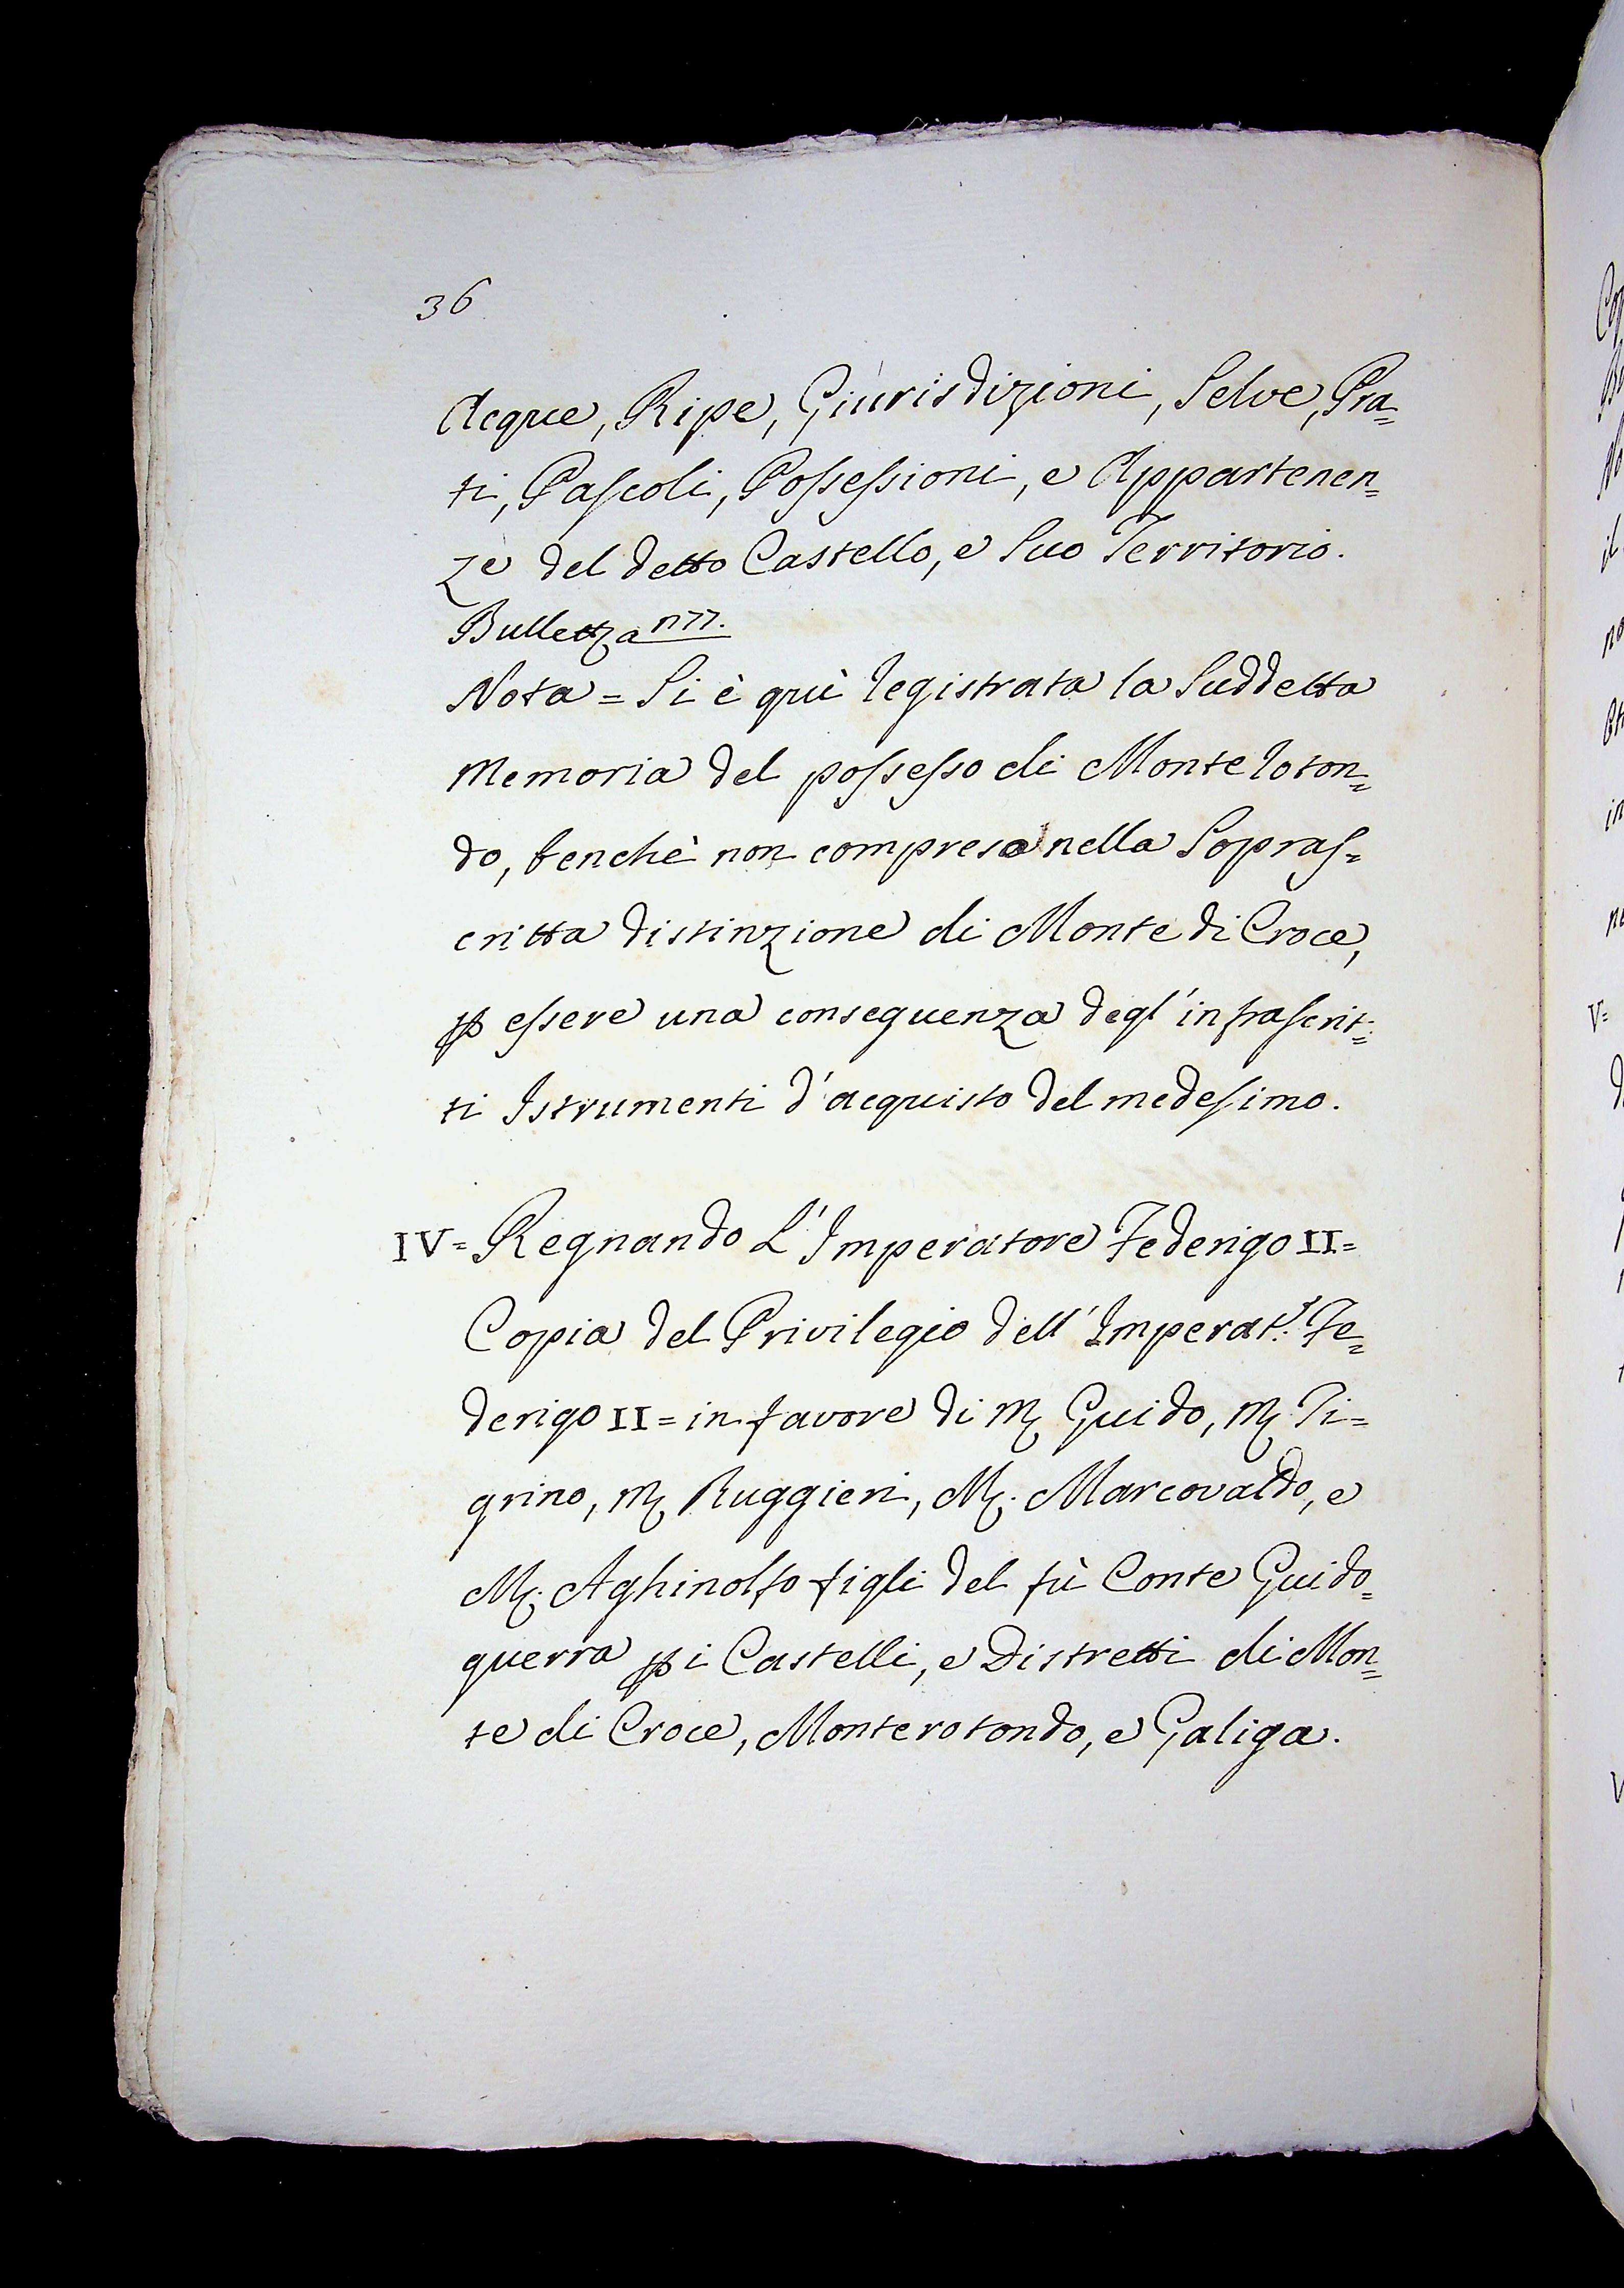 36
Acque, Ripe, Giurisdizioni, Selve, Pra=
ti, Pascoli, Possessioni, e Appartenen=
ze del detto Castello, e Suo Territorio.
Bulletta n77.
Nota = Si è quì registrata la Suddetta
Memoria del possesso di Monte roton=
do, benchè non compresa nella Sopras=
critta distinzione di Monte di Croce,
ꝑ essere una conseguenza degl'infrascrit=
ti Istrumenti d'acquisto del medesimo.
IV = Regnando L'Imperatore Federigo II =
Copia del Privilegio dell'Imperat.r Fe=
derigo II = in favore di M. Guido, M. Ti=
grino, M. Ruggieri, M. Marcovaldo, e
M. Aghinolfo figli del fù Conte Guido=
guerra ꝑ i Castelli, e Distretti di Mon=
te di Croce, Monterotondo, e Galiga.